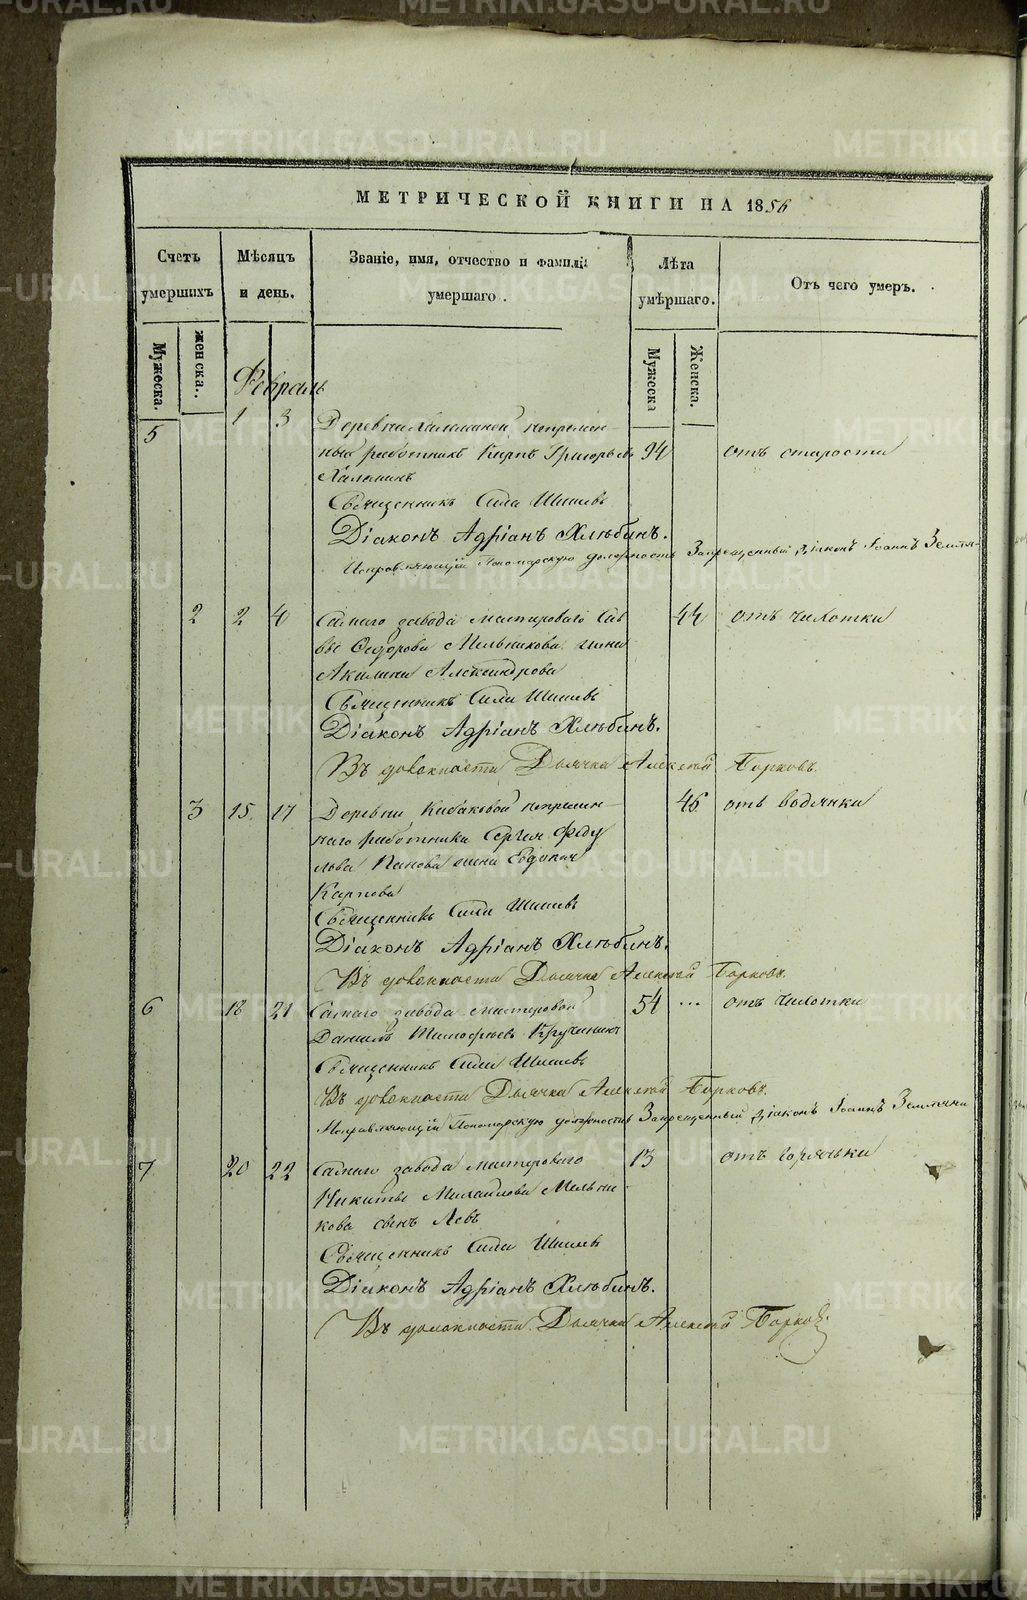 МЕТРИЧЕСКОЙ КНИГИ НА 1856
Счетъ умершихъ
Мѣсяцъ и день.
Званіе, имя, отчество и фамилія умершаго.
Лѣта умѣршаго.
Отъ чего умеръ.
Мужеска.
женска.
Мужеска
Женска.
Февраль
5 1 3 Деревни непремен-
ный работникъ Кирпъ Григорьевъ 94 отъ старости
Священникъ Сила Шишевъ
Діаконъ Адріанъ Хлѣбинъ.
Исправляющій Пономарскую должность Запрещенный Діаконъ Іоаннъ
2 2 4 Самаго завода мастероваго Сав- 44 отъ чихотки
вы Ѳедорова Мельникова жена
Акилина Александрова
Священникъ Сила Шишевъ
Діаконъ Адріанъ Хлѣбинъ.
Въ должности Дьячка Алексѣй Борковъ.
3 15 17 Деревни Кабаковой непремен- 46 отъ водянки
наго работника Сергея Феду
лова Панова жена Евдокия
Карпова
Священникъ Сила Шишевъ
Діаконъ Адріанъ Хлѣбинъ.
Въ должности Дьячка Алексѣй Борковъ.
6 18 21 Самаго завода мастеровой 54 ... отъ чихотки
Данилъ Тимофѣевъ Кручининъ
Священникъ Сила Шишевъ
Въ должности Дьячка Алексѣй Борковъ.
Исправляющій Пономарскую должность Запрещенный Діаконъ Іоаннъ
7 20 22 Самаго завода мастероваго 13 отъ горячьки
Никиты Михайлова Мельни-
кова сынъ Левъ
Священникъ Сила Шишевъ
Діаконъ Адріанъ Хлѣбинъ.
Въ должности Дьячка Алексѣй Борковъ.
METRIKI.GASO-URAL.RU